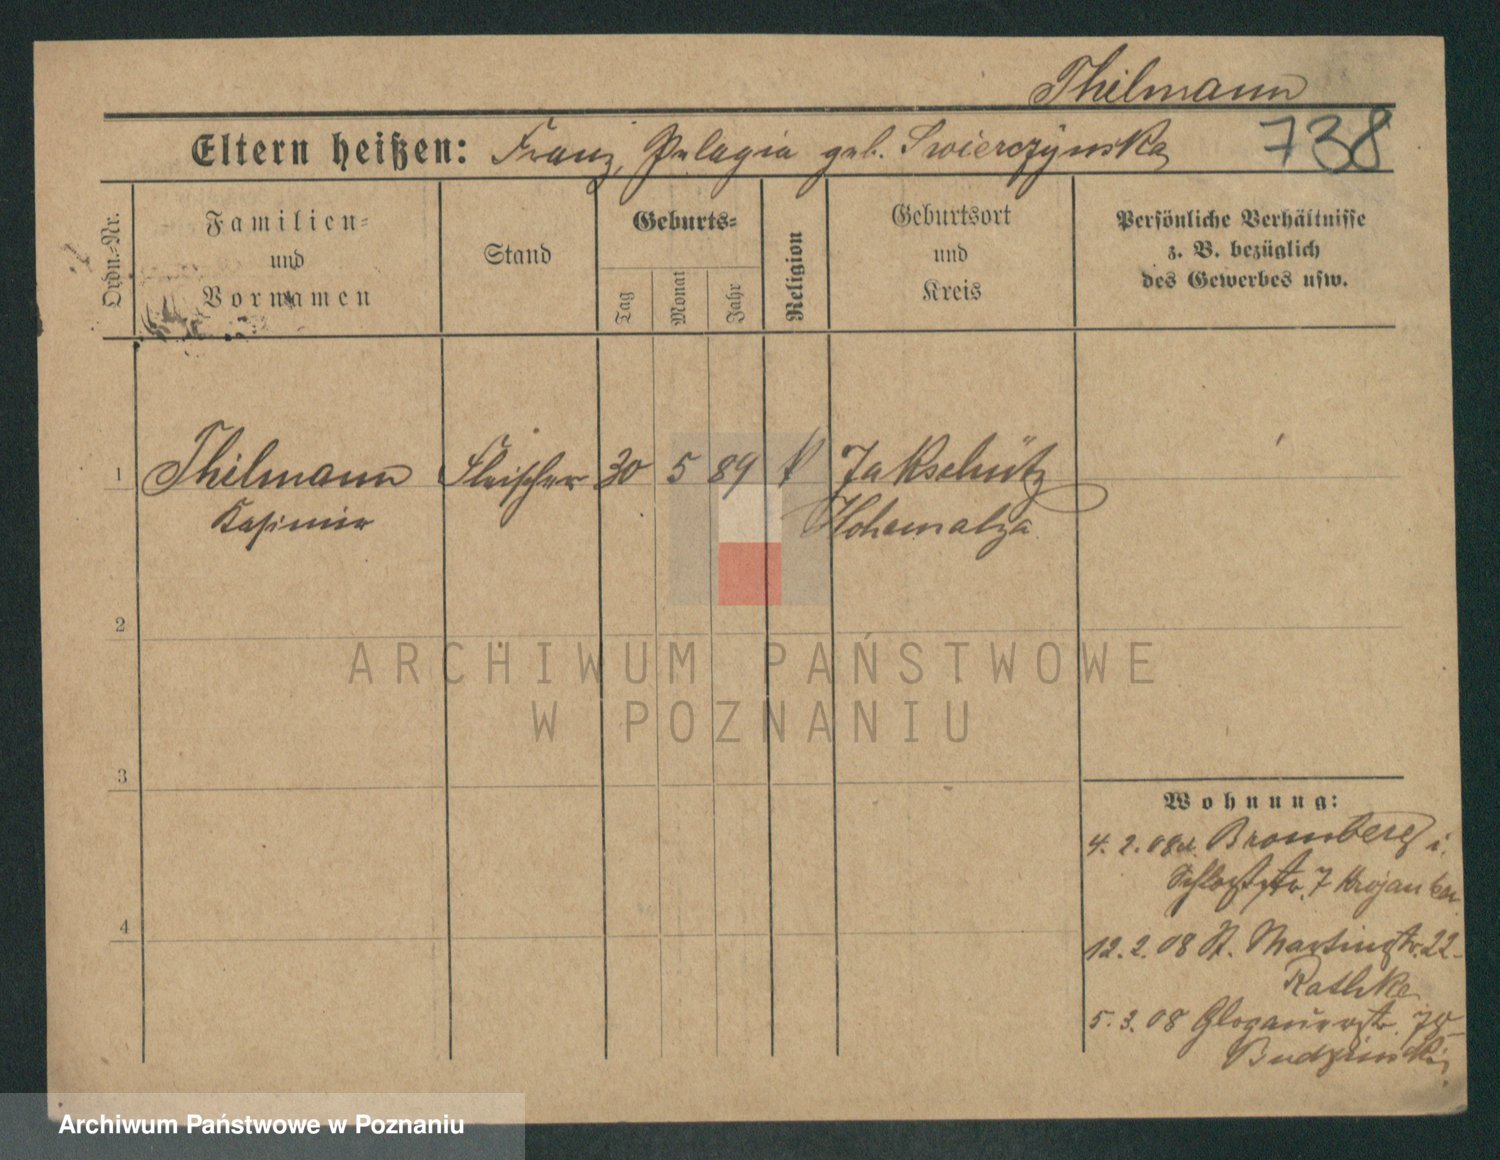 Thilmann
738
Eltern heißen: Franz, Pelagia geb. Swierczynska
Ordn.-Nr.
Familien-
und
Vornamen
Stand
Geburts-
Tag
Monat
Jahr
Religion
Geburtsort
und
Kreis
Persönliche Verhältnisse
z. B. bezüglich
des Gewerbes usw.
1 Thilmann Fleischer 30 5 89 k Jakschütz
Kasimir Hohensalza
2
ARCHIWUM PAŃSTWOWE
W POZNANIU
3
Wohnung:
4. 2. 08 Bromberg i.
Schloßstr. 7 Krojanker
4
12. 2. 08 St. Martinstr. 22
Rathke
5. 3. 08 Glogauerstr.
Budzinski
Archiwum Państwowe w Poznaniu